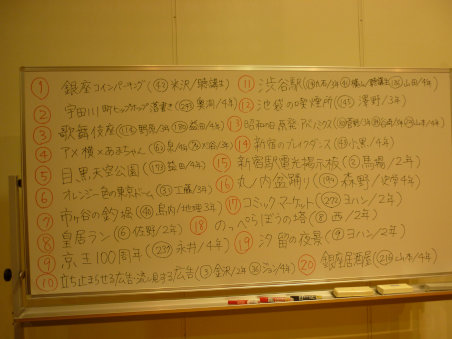 ① 銀座コインパーキング(㊸米沢/聴講生)
② 宇田川町ヒップホップ落書き(奥潤/4年)
③ 歌舞伎座(114野原/3年 益田/4年)
④ アメ横×あまちゃん(泉/4年 大倉/3年)
⑤ 目黒天空公園(173益田/4年)
⑥ オレンジ色の東京ドーム(㉛工藤/3年)
⑦ 市ヶ谷の釣堀(㊵島内/地理3年)
⑧ 皇居ラン(⑯佐野/2年)
⑨ 京王100周年(239永井/4年)
⑩ 立ち止まらせる広告・流し見する広告(③金沢/2年 ジョン/4年)
⑪ 渋谷駅(大石/3年 横山/聴講生 山田/4年)
⑫ 池袋の喫煙所(145澤野/3年)
⑬ 昭和の日 原発 アベノミクス(菅野/3年 谷崎/3年 山本/4年)
⑭ 新宿のブレイクダンス(㊸小黒/4年)
⑮ 新宿駅電光掲示板(②馬場/2年)
⑯ 丸ノ内盆踊り(194森野/史学4年)
⑰ コミックマーケット(272ヨハン/2年)
⑱ のっぺらぼうの塔(⑧西/2年)
⑲ 汐留の夜景(⑨ヨハン/2年)
⑳ 銀座居酒屋(216山本/4年)